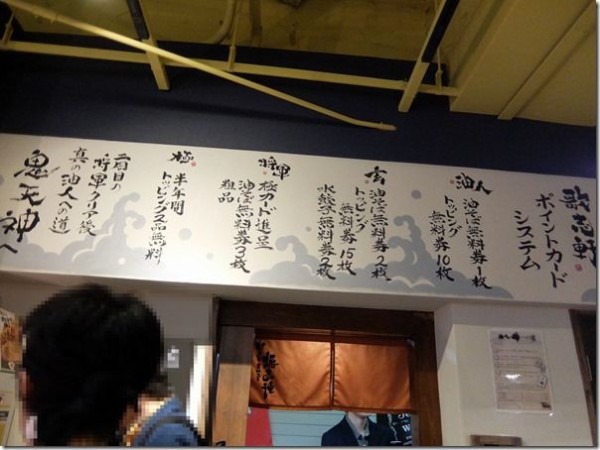 歌志軒
ポイントカード
システム
油人
油そば無料券1枚
トッピング
無料券10枚
玄
油そば無料券2枚
トッピング
無料券15枚
水餃子無料券2枚
将軍
極カード進呈
油そば無料券3枚
粗品
極
半年間
トッピング一品無料
二冊目の
将軍クリア後
真の油人への道
鬼天神へ